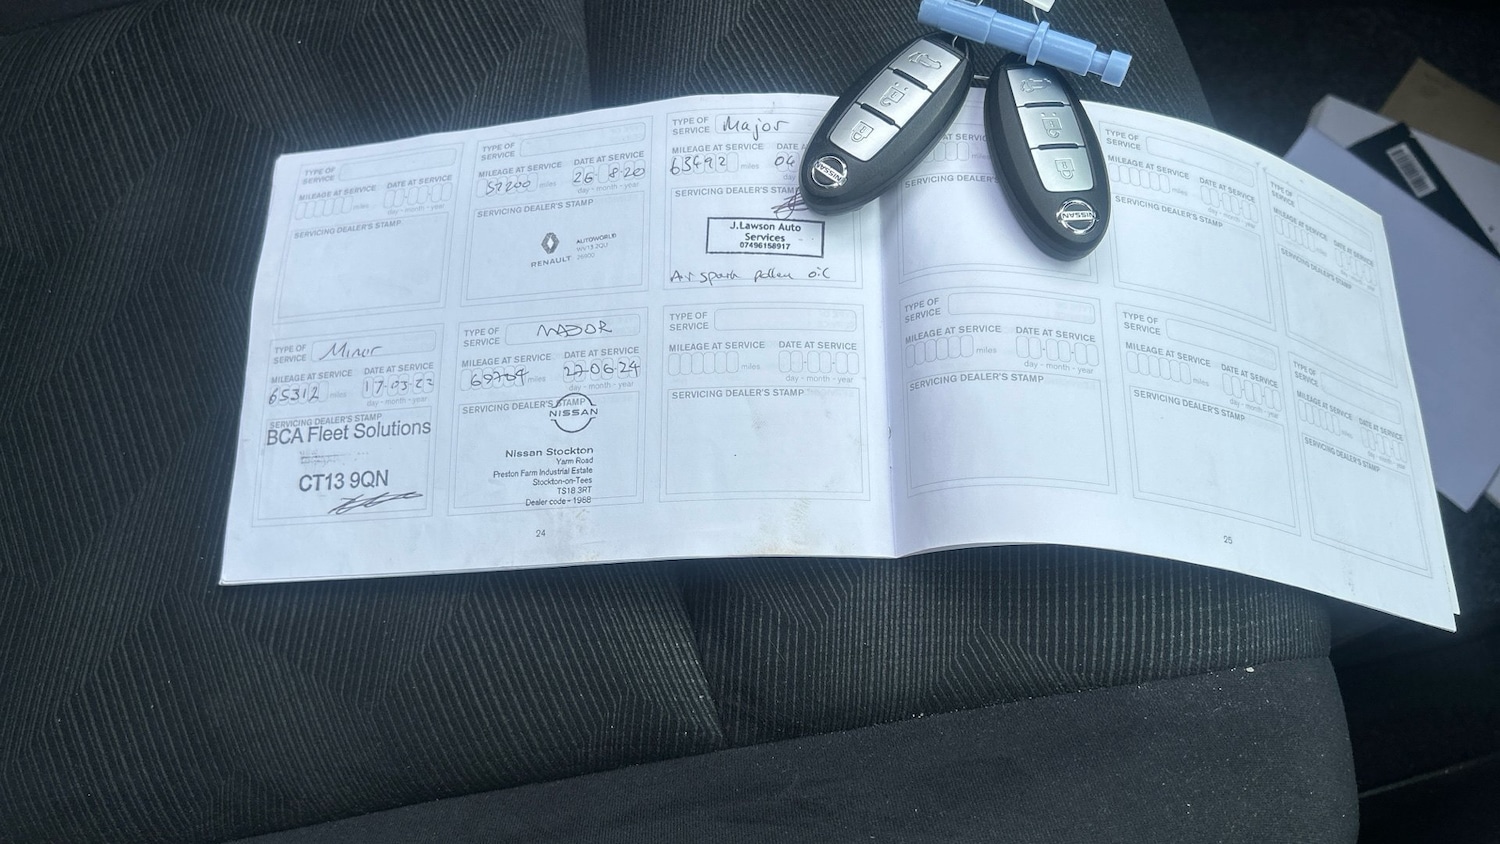 TYPE OF SERVICE
MILEAGE AT SERVICE DATE AT SERVICE
miles
day - month - year
SERVICING DEALER'S STAMP
TYPE OF SERVICE
MILEAGE AT SERVICE DATE AT SERVICE
52200 miles 26 8 20
day - month - year
SERVICING DEALER'S STAMP
RENAULT
AUTOWORLD
TYPE OF SERVICE Major
MILEAGE AT SERVICE DA
63492 miles 04
day
SERVICING DEALER'S STAMP
J.Lawson Auto
Services
07496158917
Air spark pollen oil
NISSAN
NISSAN
SERVICE
MILEAGE AT SERVICE
SERVICING DEALER'S
TYPE OF SERVICE
MILEAGE AT SERVICE DATE AT SERVICE
miles
day - month - year
SERVICING DEALER'S STAMP
TYPE OF SERVICE
MILEAGE AT SERVICE DATE AT SERVICE
SERVICING DEALER'S STAMP
TYPE OF SERVICE Minor
MILEAGE AT SERVICE DATE AT SERVICE
65312 miles 17 03 23
day - month - year
SERVICING DEALER'S STAMP
BCA Fleet Solutions
CT13 9QN
TYPE OF SERVICE MAJOR
MILEAGE AT SERVICE DATE AT SERVICE
69704 miles 27 06 24
day - month - year
SERVICING DEALER'S STAMP
NISSAN
Nissan Stockton
Yarm Road
Preston Farm Industrial Estate
Stockton-on-Tees
TS18 3RT
Dealer code - 1988
TYPE OF SERVICE
MILEAGE AT SERVICE DATE AT SERVICE
miles
day - month - year
SERVICING DEALER'S STAMP
TYPE OF SERVICE
MILEAGE AT SERVICE DATE AT SERVICE
miles
day - month - year
SERVICING DEALER'S STAMP
TYPE OF SERVICE
MILEAGE AT SERVICE DATE AT SERVICE
miles
day - month - year
SERVICING DEALER'S STAMP
TYPE OF SERVICE
MILEAGE AT SERVICE DATE AT SERVICE
SERVICING DEALER'S STAMP
24
25